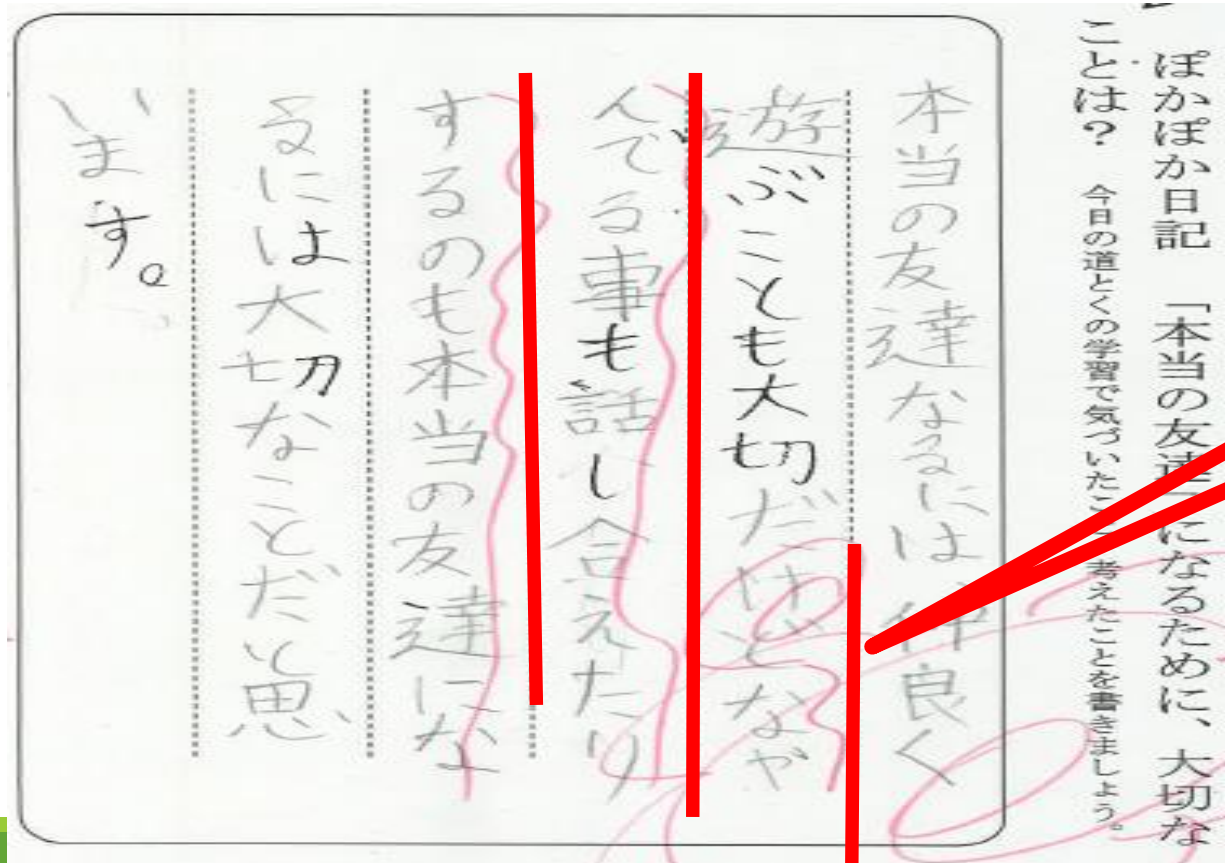 ぽかぽか日記 「本当の友達」になるために、大切な
ことは？ 今日の道とくの学習で気づいたこと 考えたことを書きましょう。
本当の友達なるには、仲良く
遊ぶことも大切だけどなや
んでる事も話し合えたり
するのも本当の友達にな
るには大切なことだと思
います。